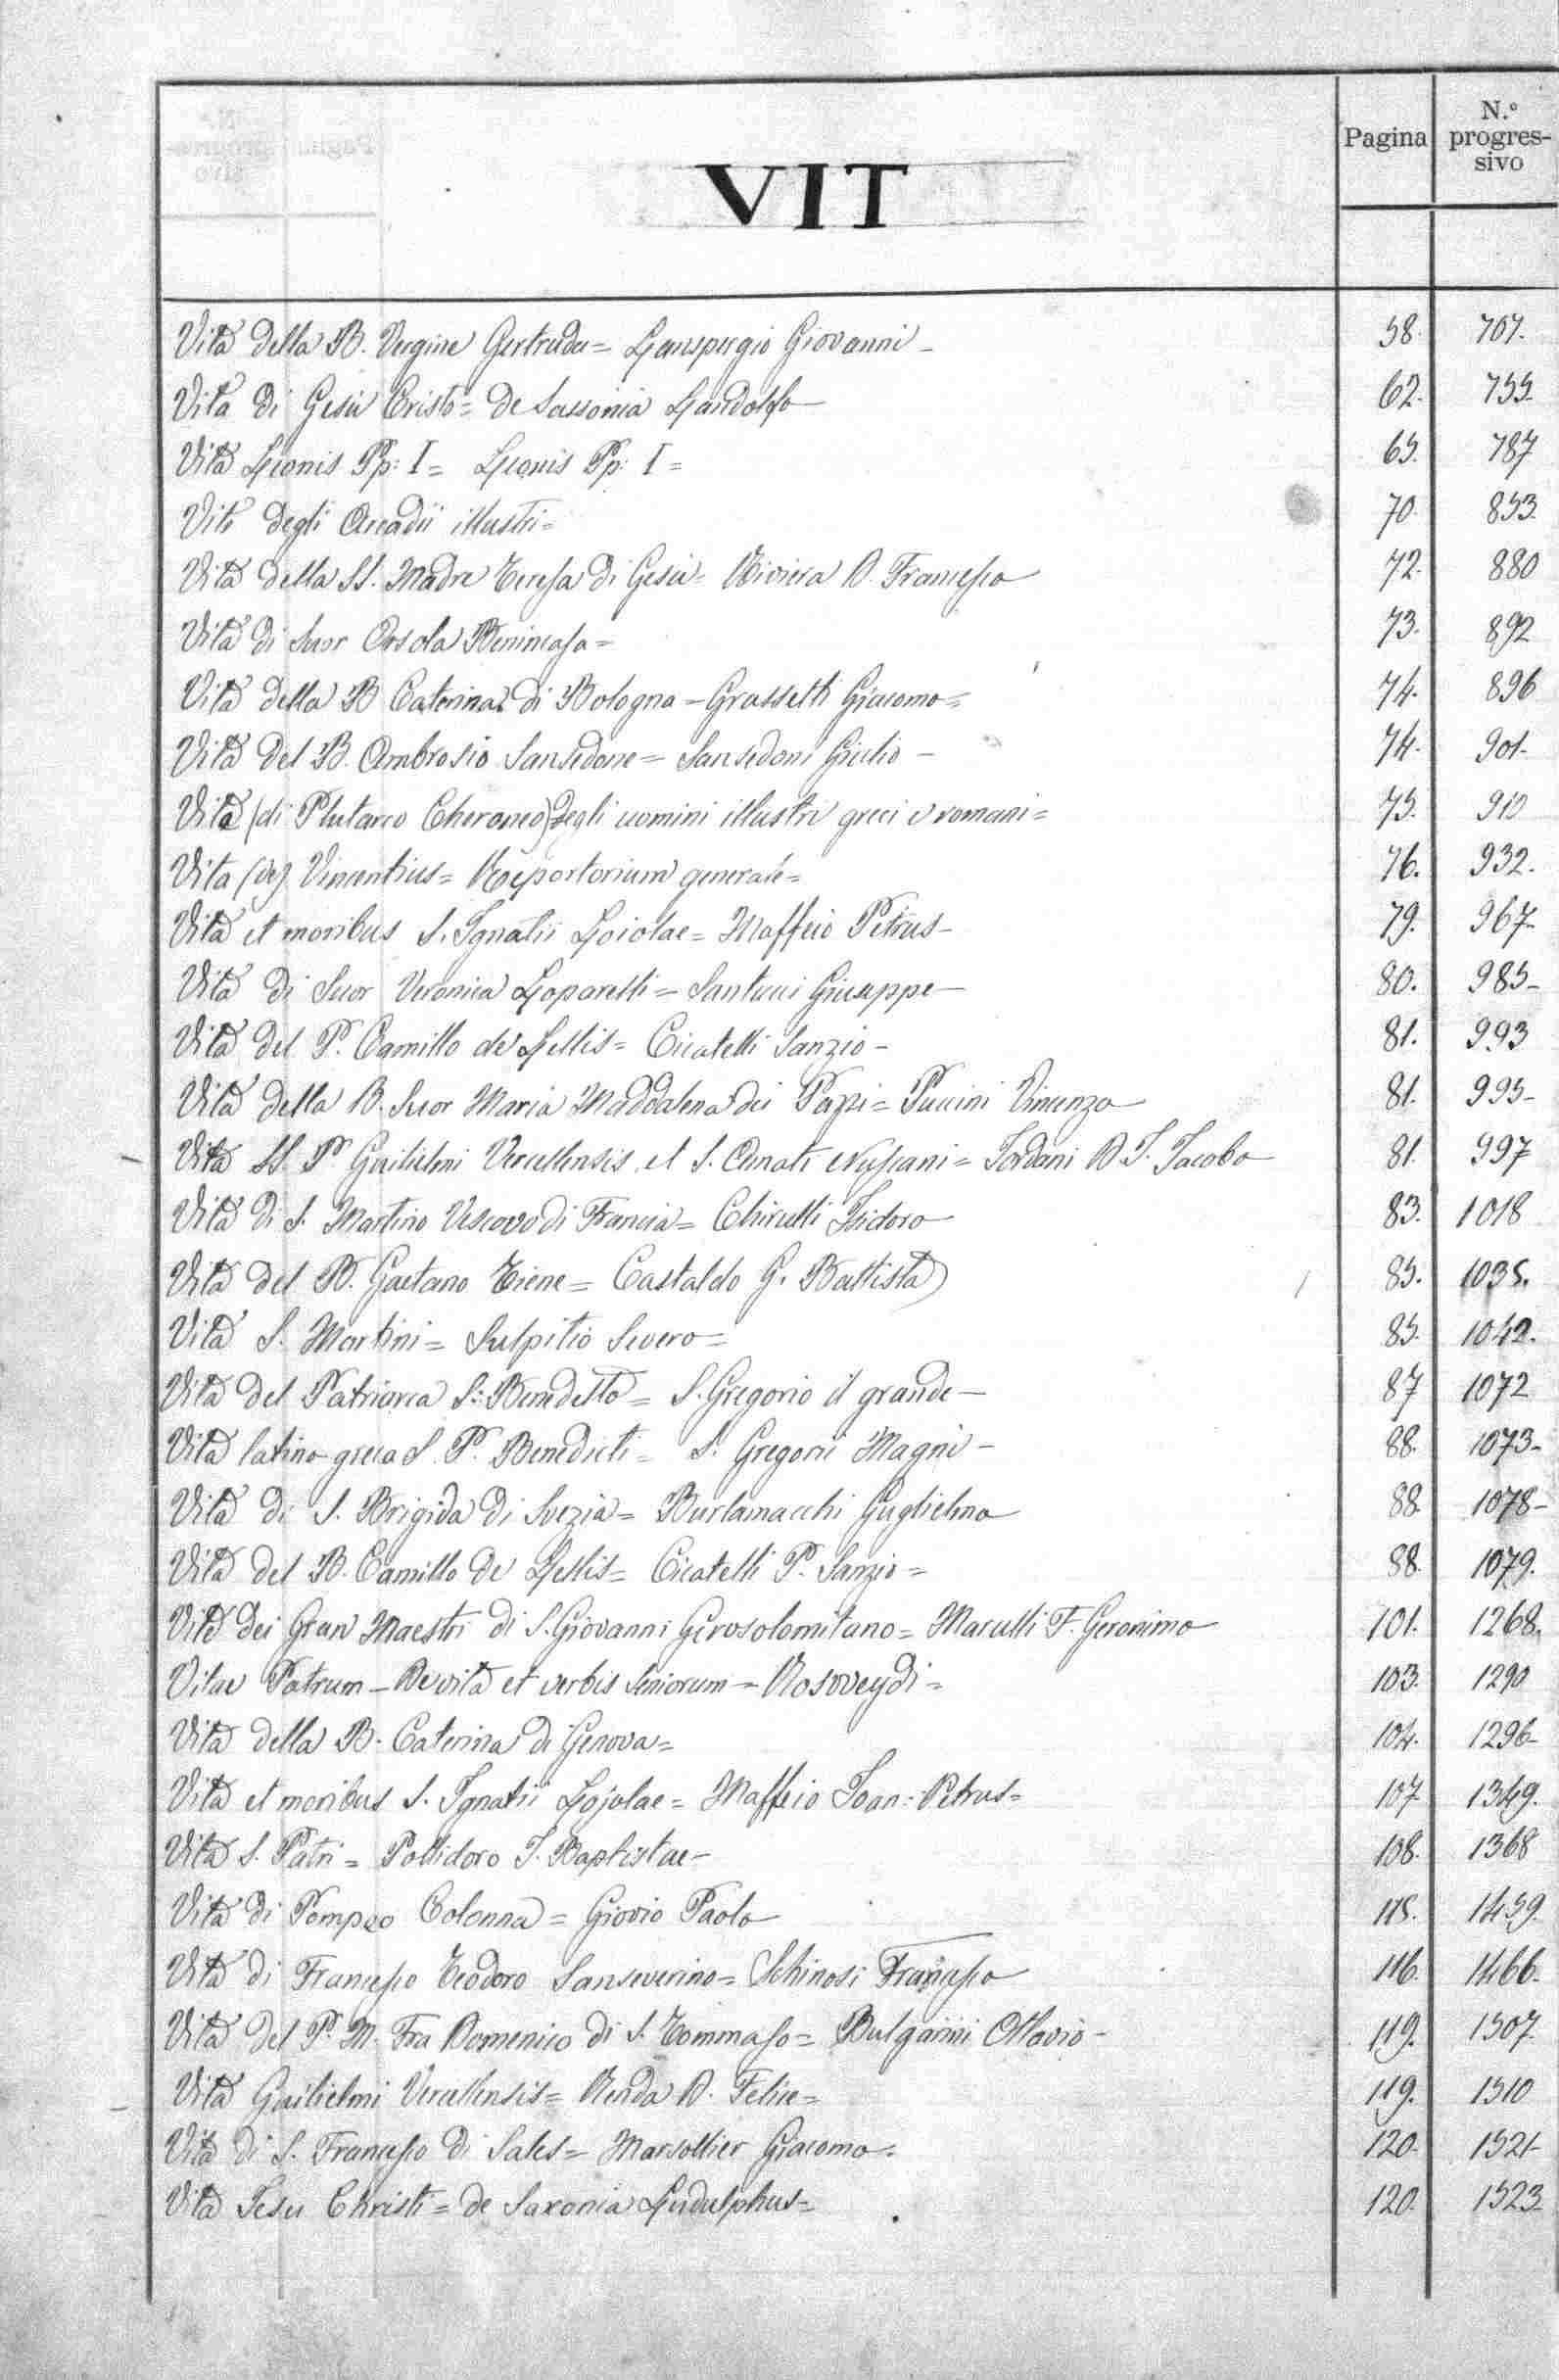 Pagina N.º progres-sivo
VIT
Vita della B. Vergine Gertrude= Lanspergio Giovanni- 58. 707.
Vita di Gesù Cristo= De Sassonia Landolfo 62. 755.
Vita Leonis Pp: I= Leonis Pp: I= 65. 787
Vite degli Arcadii illustri= 70. 853.
Vita della SS. Madre Teresa di Gesù= Riviera D. Francesco 72. 880
Vita di Suor Orsola Benincasa= 73. 892
Vita della B Caterina di Bologna- Grassetti Giacomo= 74. 896
Vita del B. Ambrosio Sansedone= Sansedoni Giulio- 74. 901-
Vite (di Plutarco Cheroneo) degli uomini illustri greci e romani= 75. 910
Vita (de) Vincentius= Repertorium generale= 76. 932.
Vita et moribus S. Ignatii Loiolae= Maffeio Petrus- 79. 967-
Vita di Suor Veronica Laparelli= Santucci Giuseppe- 80. 985-
Vita del P. Camillo de Lellis= Cicatelli Sanzio- 81. 993
Vita della B. Suor Maria Maddalena dei Pazzi= Puccini Vincenzo 81. 995-
Vita SS. P Guilielmi Vercellensis et S. Donati Nuscani= Jordani D. J. Jacobo 81. 997
Vita di S. Martino Vescovo di Francia= Chirulli Isidoro 83. 1018
Vita del B. Gaetano Tiene= Castaldo G. Battista 85. 1035.
Vita S. Martini= Sulpitio Severo= 85. 1042.
Vita del Patriarca S: Benedetto= S. Gregorio il grande- 87 1072
Vita latino-greca S. P. Benedicti= S. Gregorii Magni- 88. 1073-
Vita di S. Brigida di Svezia= Burlamacchi Guglielmo 88. 1078-
Vita del B. Camillo De Lellis= Cicatelli P. Sanzio= 88. 1079.
Vite dei Gran Maestri di S. Giovanni Gerosolomitano= Marulli F. Geronimo 101. 1268.
Vitae Patrum- De vita et verbis Seniorum- Rosweydi= 103. 1290
Vita della B. Caterina di Genova= 104. 1296-
Vita et moribus S. Ignatii Lojolae= Maffeio Joan: Petrus= 107. 1349.
Vita S. Patri= Pollidoro J. Baptistae- 108. 1368
Vita di Pompeo Colonna= Giovio Paolo 115. 1459.
Vita di Francesco Teodoro Sanseverino= Schinosi Francesco 116. 1466-
Vita del P. M. Fra Domenico di S. Tommaso= Bulgarini Ottavio- 119. 1507.
Vita Guilielmi Vercellensis= Renda D. Felice= 119. 1510
Vita di S. Francesco di Sales= Marsollier Giacomo= 120. 1521-
Vita Jesu Christi= de Saxonia Ludulphus= 120. 1523-